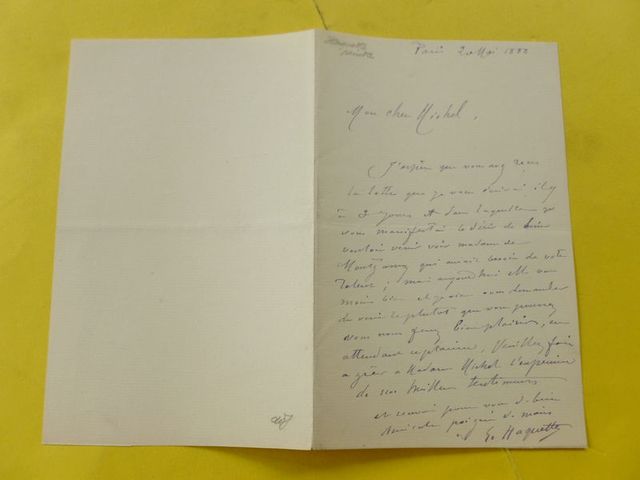 Paris 20 Mai 1882
Mon cher Michel,
J'espère que vous avez reçu
la lettre que je vous écrivai il y
à 3 jours et dans laquelle je
vous manifestai le désir de
vouloir venir voir madame de
Montgomery qui aurait besoin de votre
talent ; mais aujourd'hui elle va
moins bien et je viens vous demander
de venir le plutot que vous pourrez
vous nous ferez bien plaisir, en
attendant ce plaisir, Veuillez faire
agréer à Madame Michel l'expression
de mes meilleurs sentiments
et recevoir pour vous
amicale poignée de main
G. Haquette